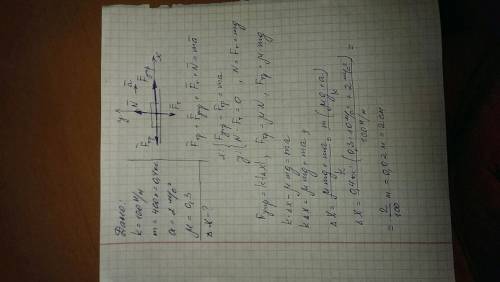 Дано:
k = 100 Н/м
m = 400 г = 0,4 кг
a = 2 м/с²
μ = 0,3
Δx - ?
y
N
a
Fупр
x
Fтр
Fт
Fтр + Fупр + Fт + N = ma
x: { Fупр - Fтр = ma
y: { N - Fт = 0, N = Fт = mg
Fупр = k|Δx|, Fтр = μN, Fтр = μmg
k·Δx - μmg = ma
kΔx = μmg + ma;
Δx = μmg + ma / k = m (μg + a) / k
Δx = 0,4 кг · (0,3 · 10 м/с² + 2 м/с²) / 100 Н/м =
= 2 / 100 м = 0,02 м = 2 см